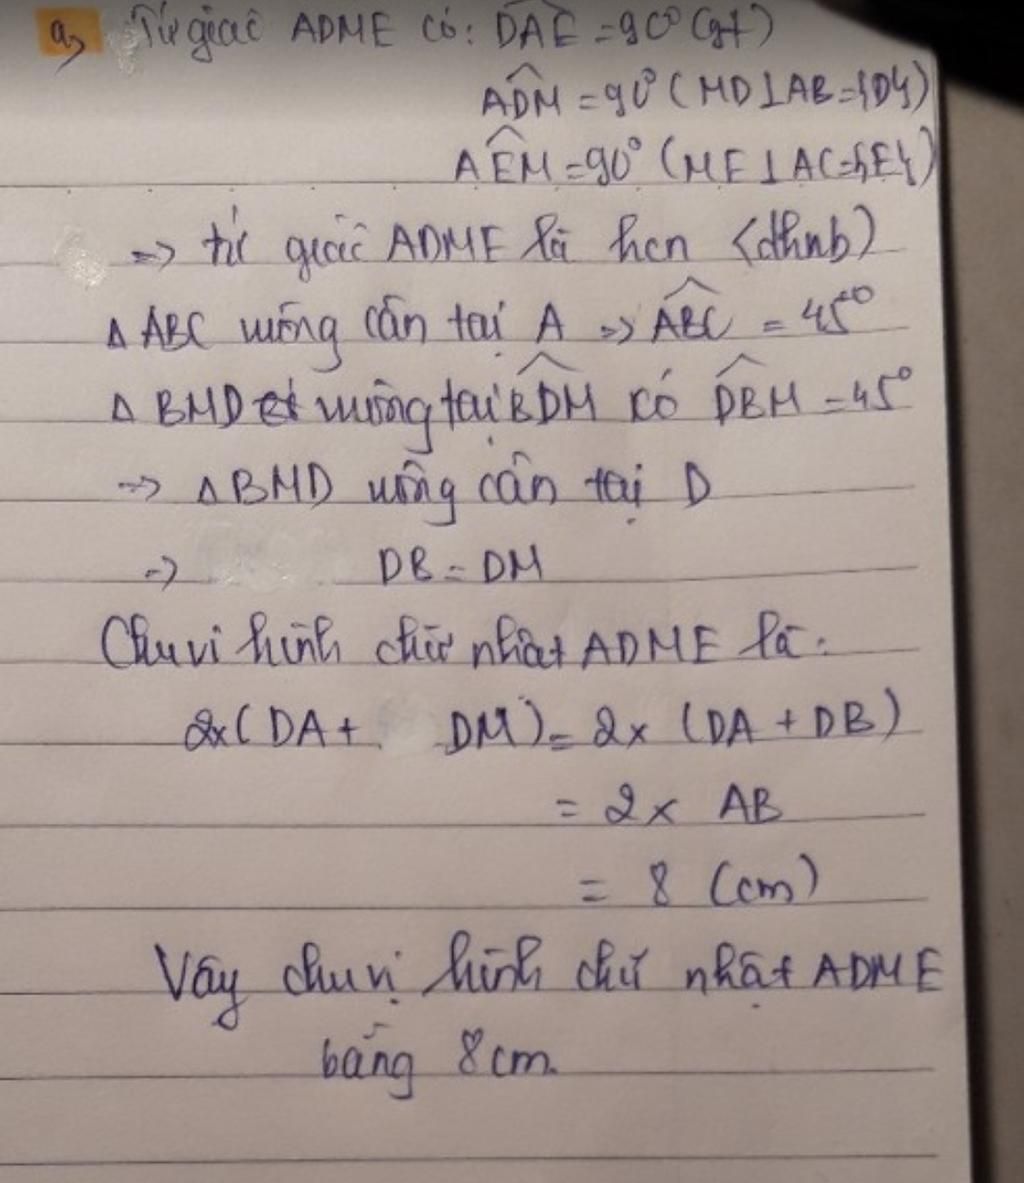 a, Tứ giác ADME có: DAE = 90° (gt)
ADM = 90° (MD⊥AB={D})
AEM = 90° (ME⊥AC={E})
=> tứ giác ADME là hcn (dhnb)
Δ ABC vuông cân tại A => ABC = 45°
Δ BMD vuông tại BDM có DBM = 45°
=> Δ BMD vuông cân tại D
=> DB = DM
Chu vi hình chữ nhật ADME là:
2x(DA + DM) = 2x (DA + DB)
= 2x AB
= 8 (cm)
Vậy chu vi hình chữ nhật ADME
bằng 8cm.